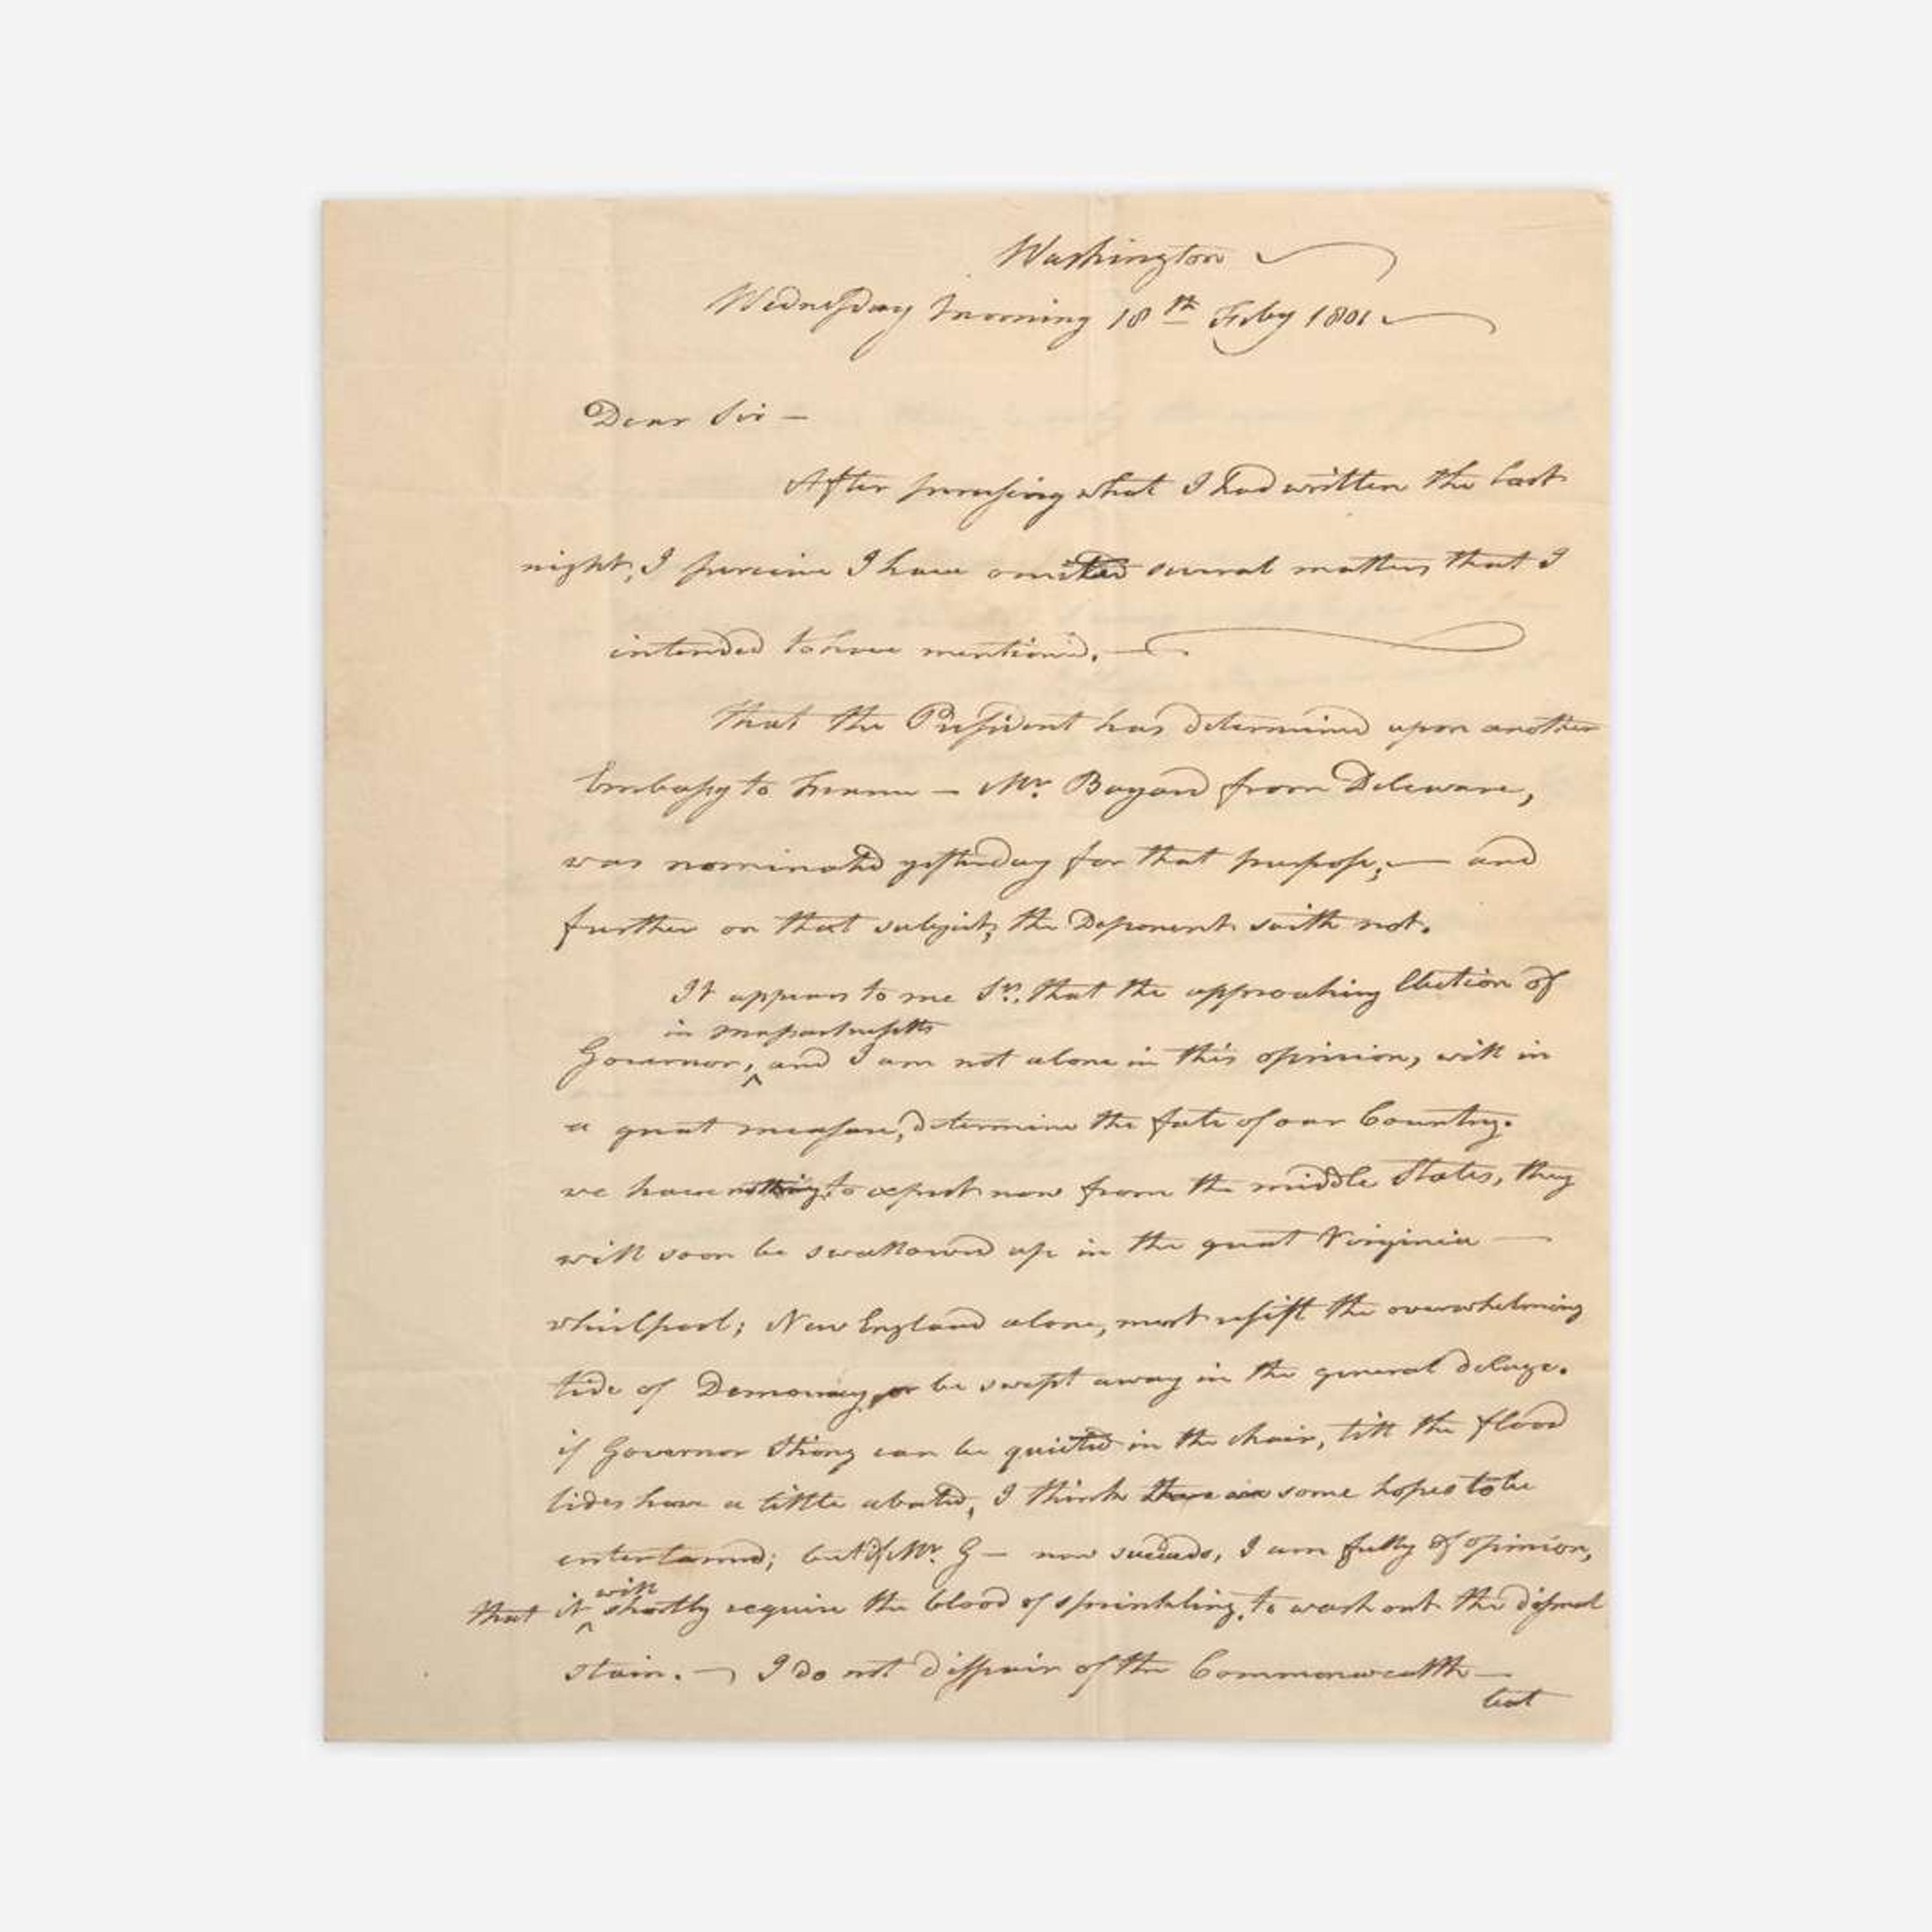 Washington
Wednesday morning 18th Feby 1801
Dear Sir —
After perusing what I had written the last
night, I perceive I have omitted several matters that I
intended to have mention'd. —
That the President has determined upon another
Embassy to France — Mr. Bayard from Deleware,
was nominated yesterday for that purpose; — and
further on that subject, the Deponent saith not.
It appears to me Sr., that the approaching Election of
in Massachusetts
Governor, ^ and I am not alone in this opinion, will in
a great measure, determine the fate of our Country.
we have nothing to expect now from the middle States, they
will soon be swallowed up in the great Virginia —
whirlpool; New England alone, must resist the overwhelming
tide of Democracy, or be swept away in the general deluge.
if Governor Strong can be quieted in the chair, till the flood
tides have a little abated, I think there are some hopes to be
entertained; but if Mr. G — now succeeds, I am fully of opinion,
will
that it ^ shortly require the blood of sprinkling, to wash out the dismal
stain. — I do not dispair of the Commonwealth —
but